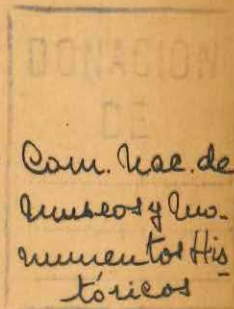 DONACION
DE
Com. Nac. de
Museos y Mo-
numentos His
tóricos